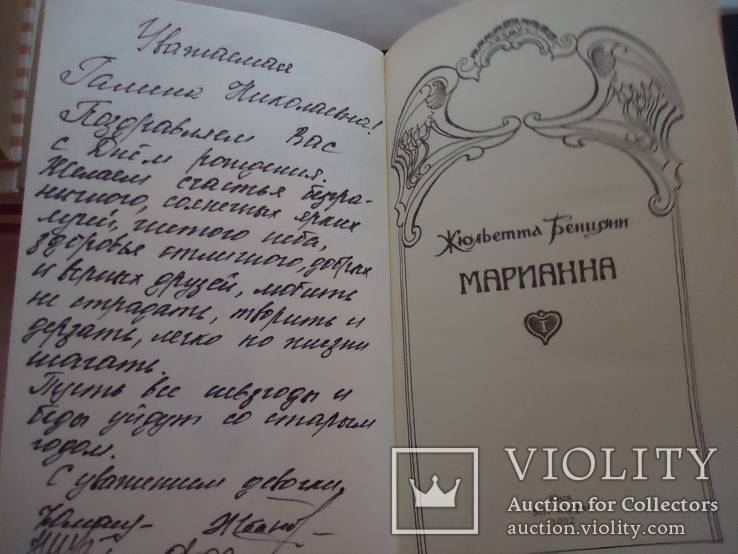 Уважаемая
Галина Николаевна!
Поздравляем Вас
с Днём рождения.
Желаем счастья безгра-
ничного, солнечных ярких
лучей, чистого неба,
здоровье отличного, добрых
и верных друзей, любить
не страдать, творить и
дерзать, легко по жизни
шагать.
Пусть все невзгоды и
беды уйдут со старым
годом.
С уважением девочки
Жюльетта Бенцони
МАРИАННА
I
VIOLITY
Auction for Collectors
auction.violity.com